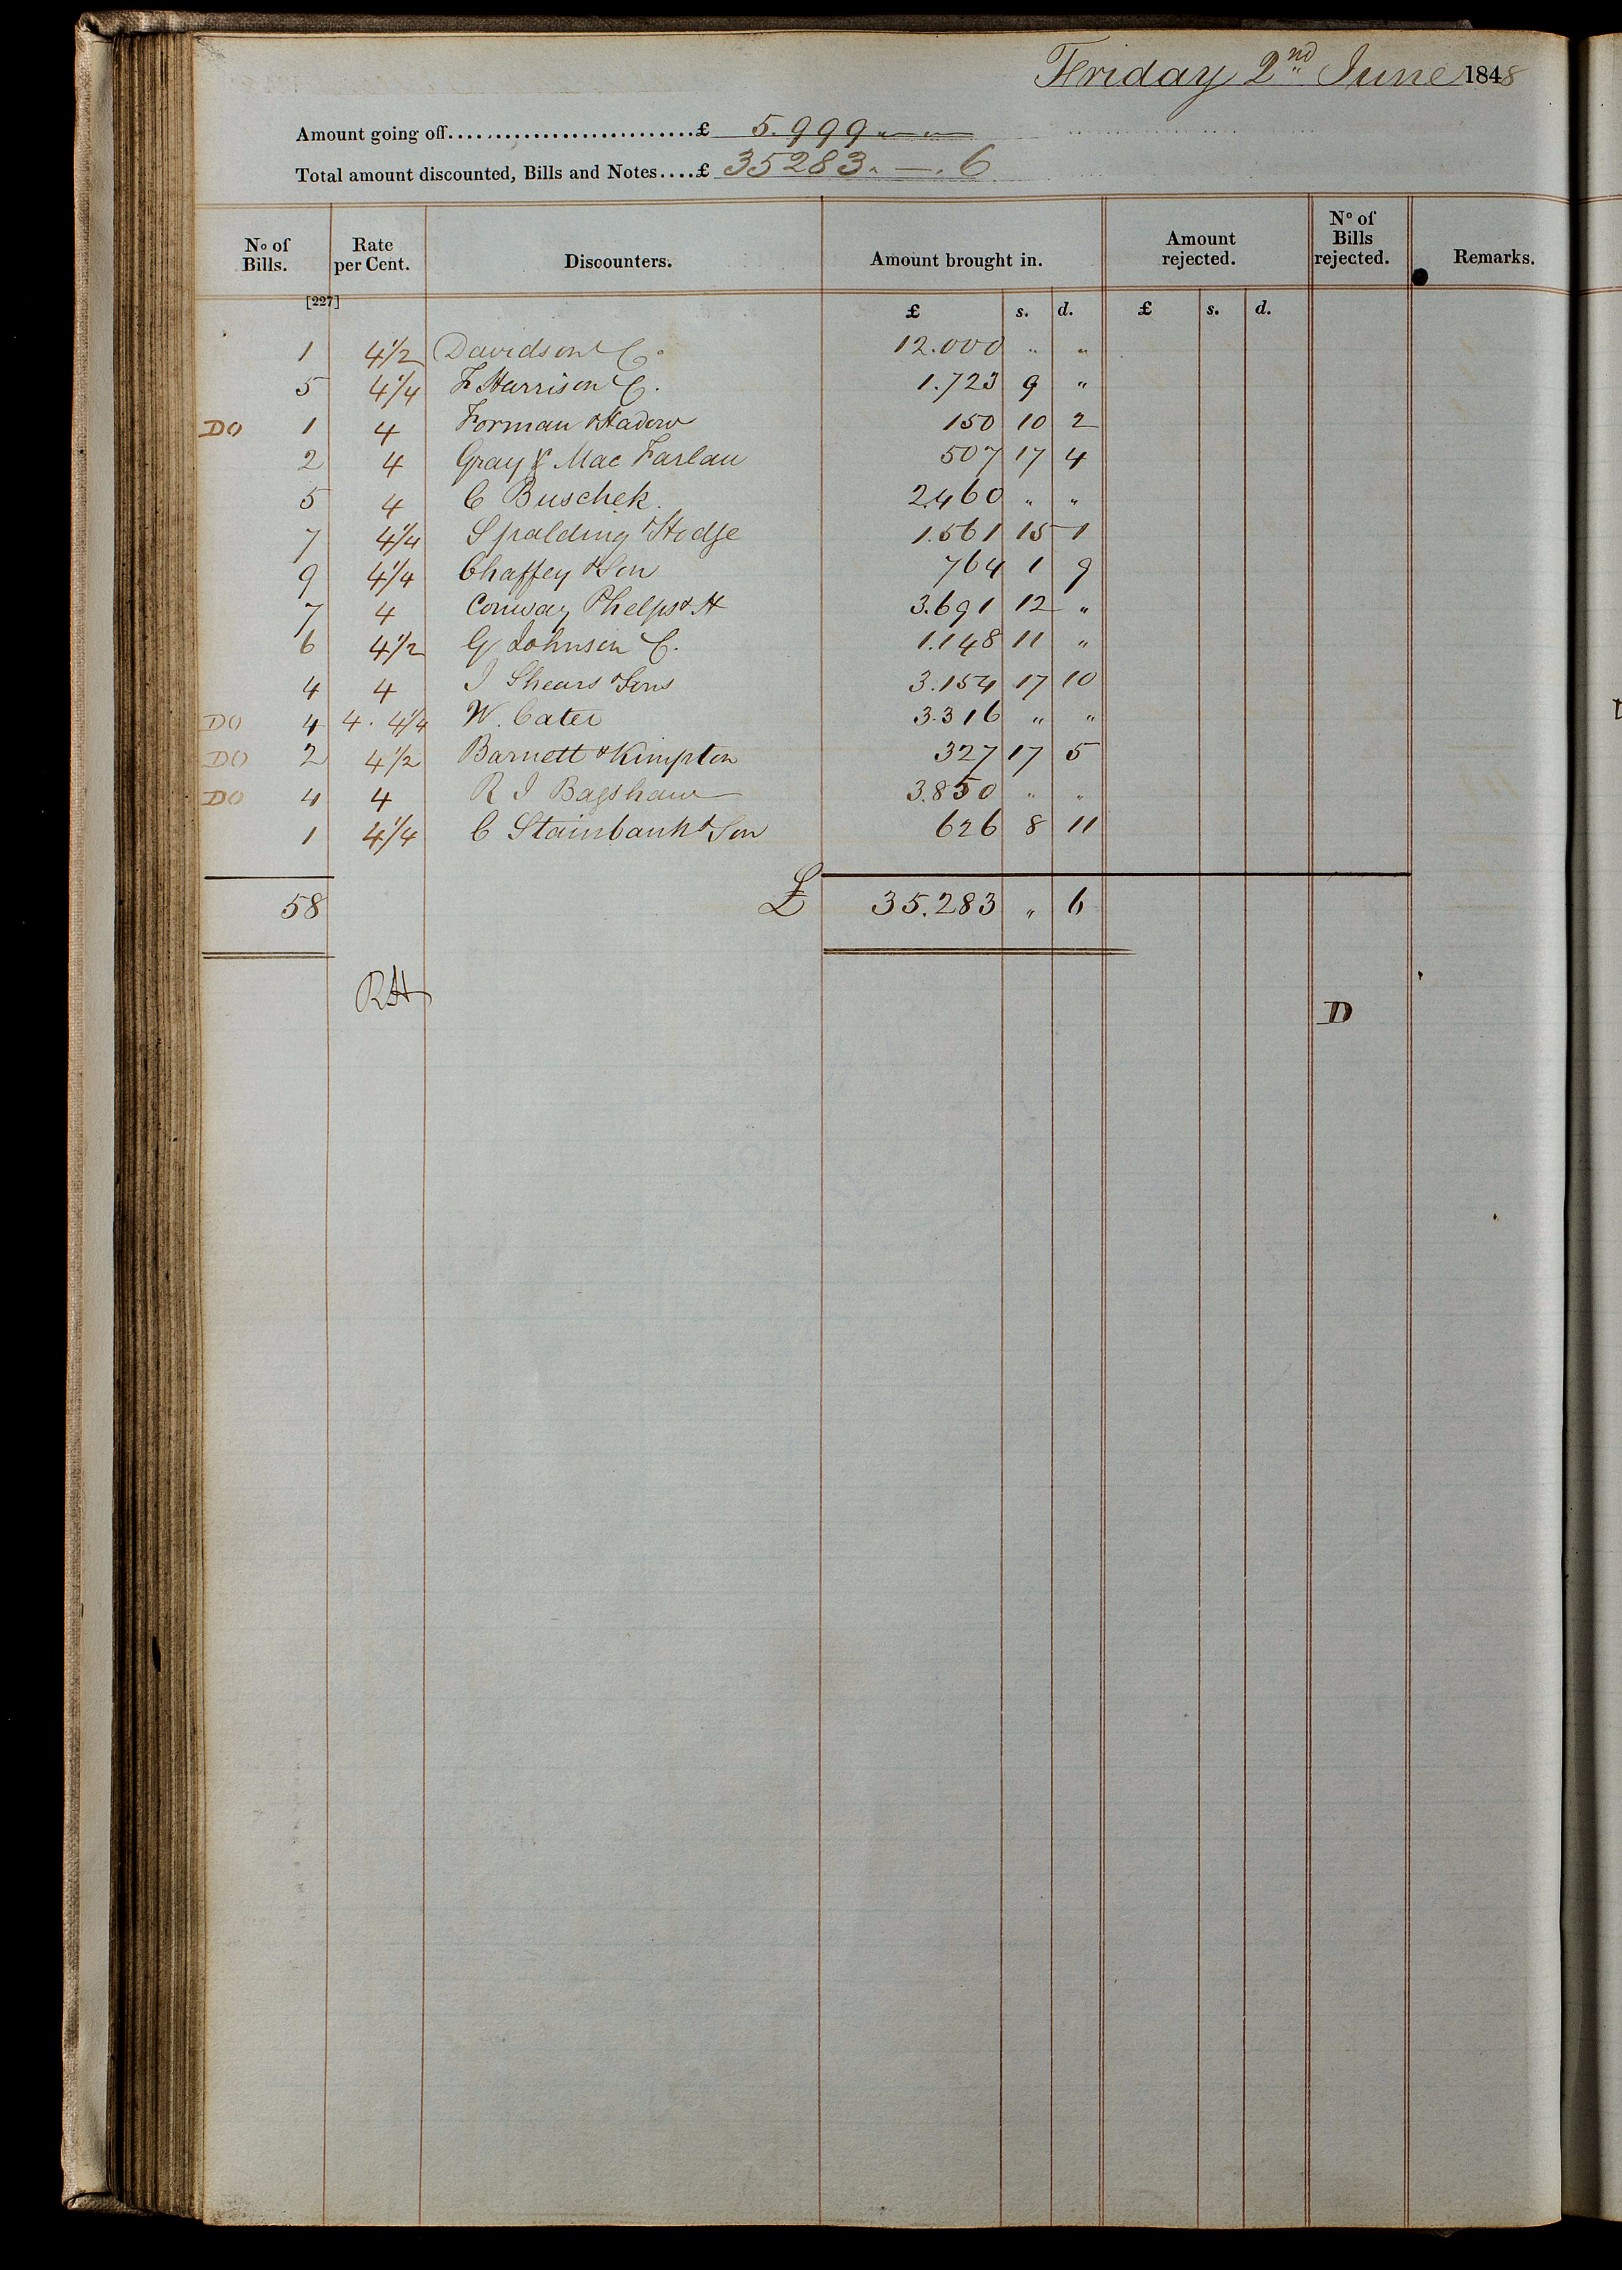 Friday 2nd June 1848
Amount going off..........................£ 5.999 " — " —
Total amount discounted, Bills and Notes....£ 35283 " — . 6
No of Bills. Rate per Cent. Discounters. Amount brought in. Amount rejected. No of Bills rejected. Remarks.
[227]
£ s. d. £ s. d.
1 4½ Davidson & Co 12.000 " "
5 4¼ F Harrison & C. 1.723 9 "
DO 1 4 Forman & Hadow 150 10 2
2 4 Gray & Mac Farlan 507 17 4
5 4 C Buschek. 2.460 " "
7 4¼ Spalding & Hodge 1.561 15 1
9 4¼ Chaffey & Son 764 1 9
7 4 Conway Phelps & H 3.691 12 "
6 4½ G Johnson & C. 1.148 11 "
4 4 J Shears & Sons 3.154 17 10
DO 4 4 . 4¼ W. Cater 3.316 " "
DO 2 4½ Barnett & Kimpton 327 17 5
DO 4 4 R J Bagshaw 3.850 " "
1 4¼ C Stainbank & Son 626 8 11
58 £ 35.283 " 6
RH
D